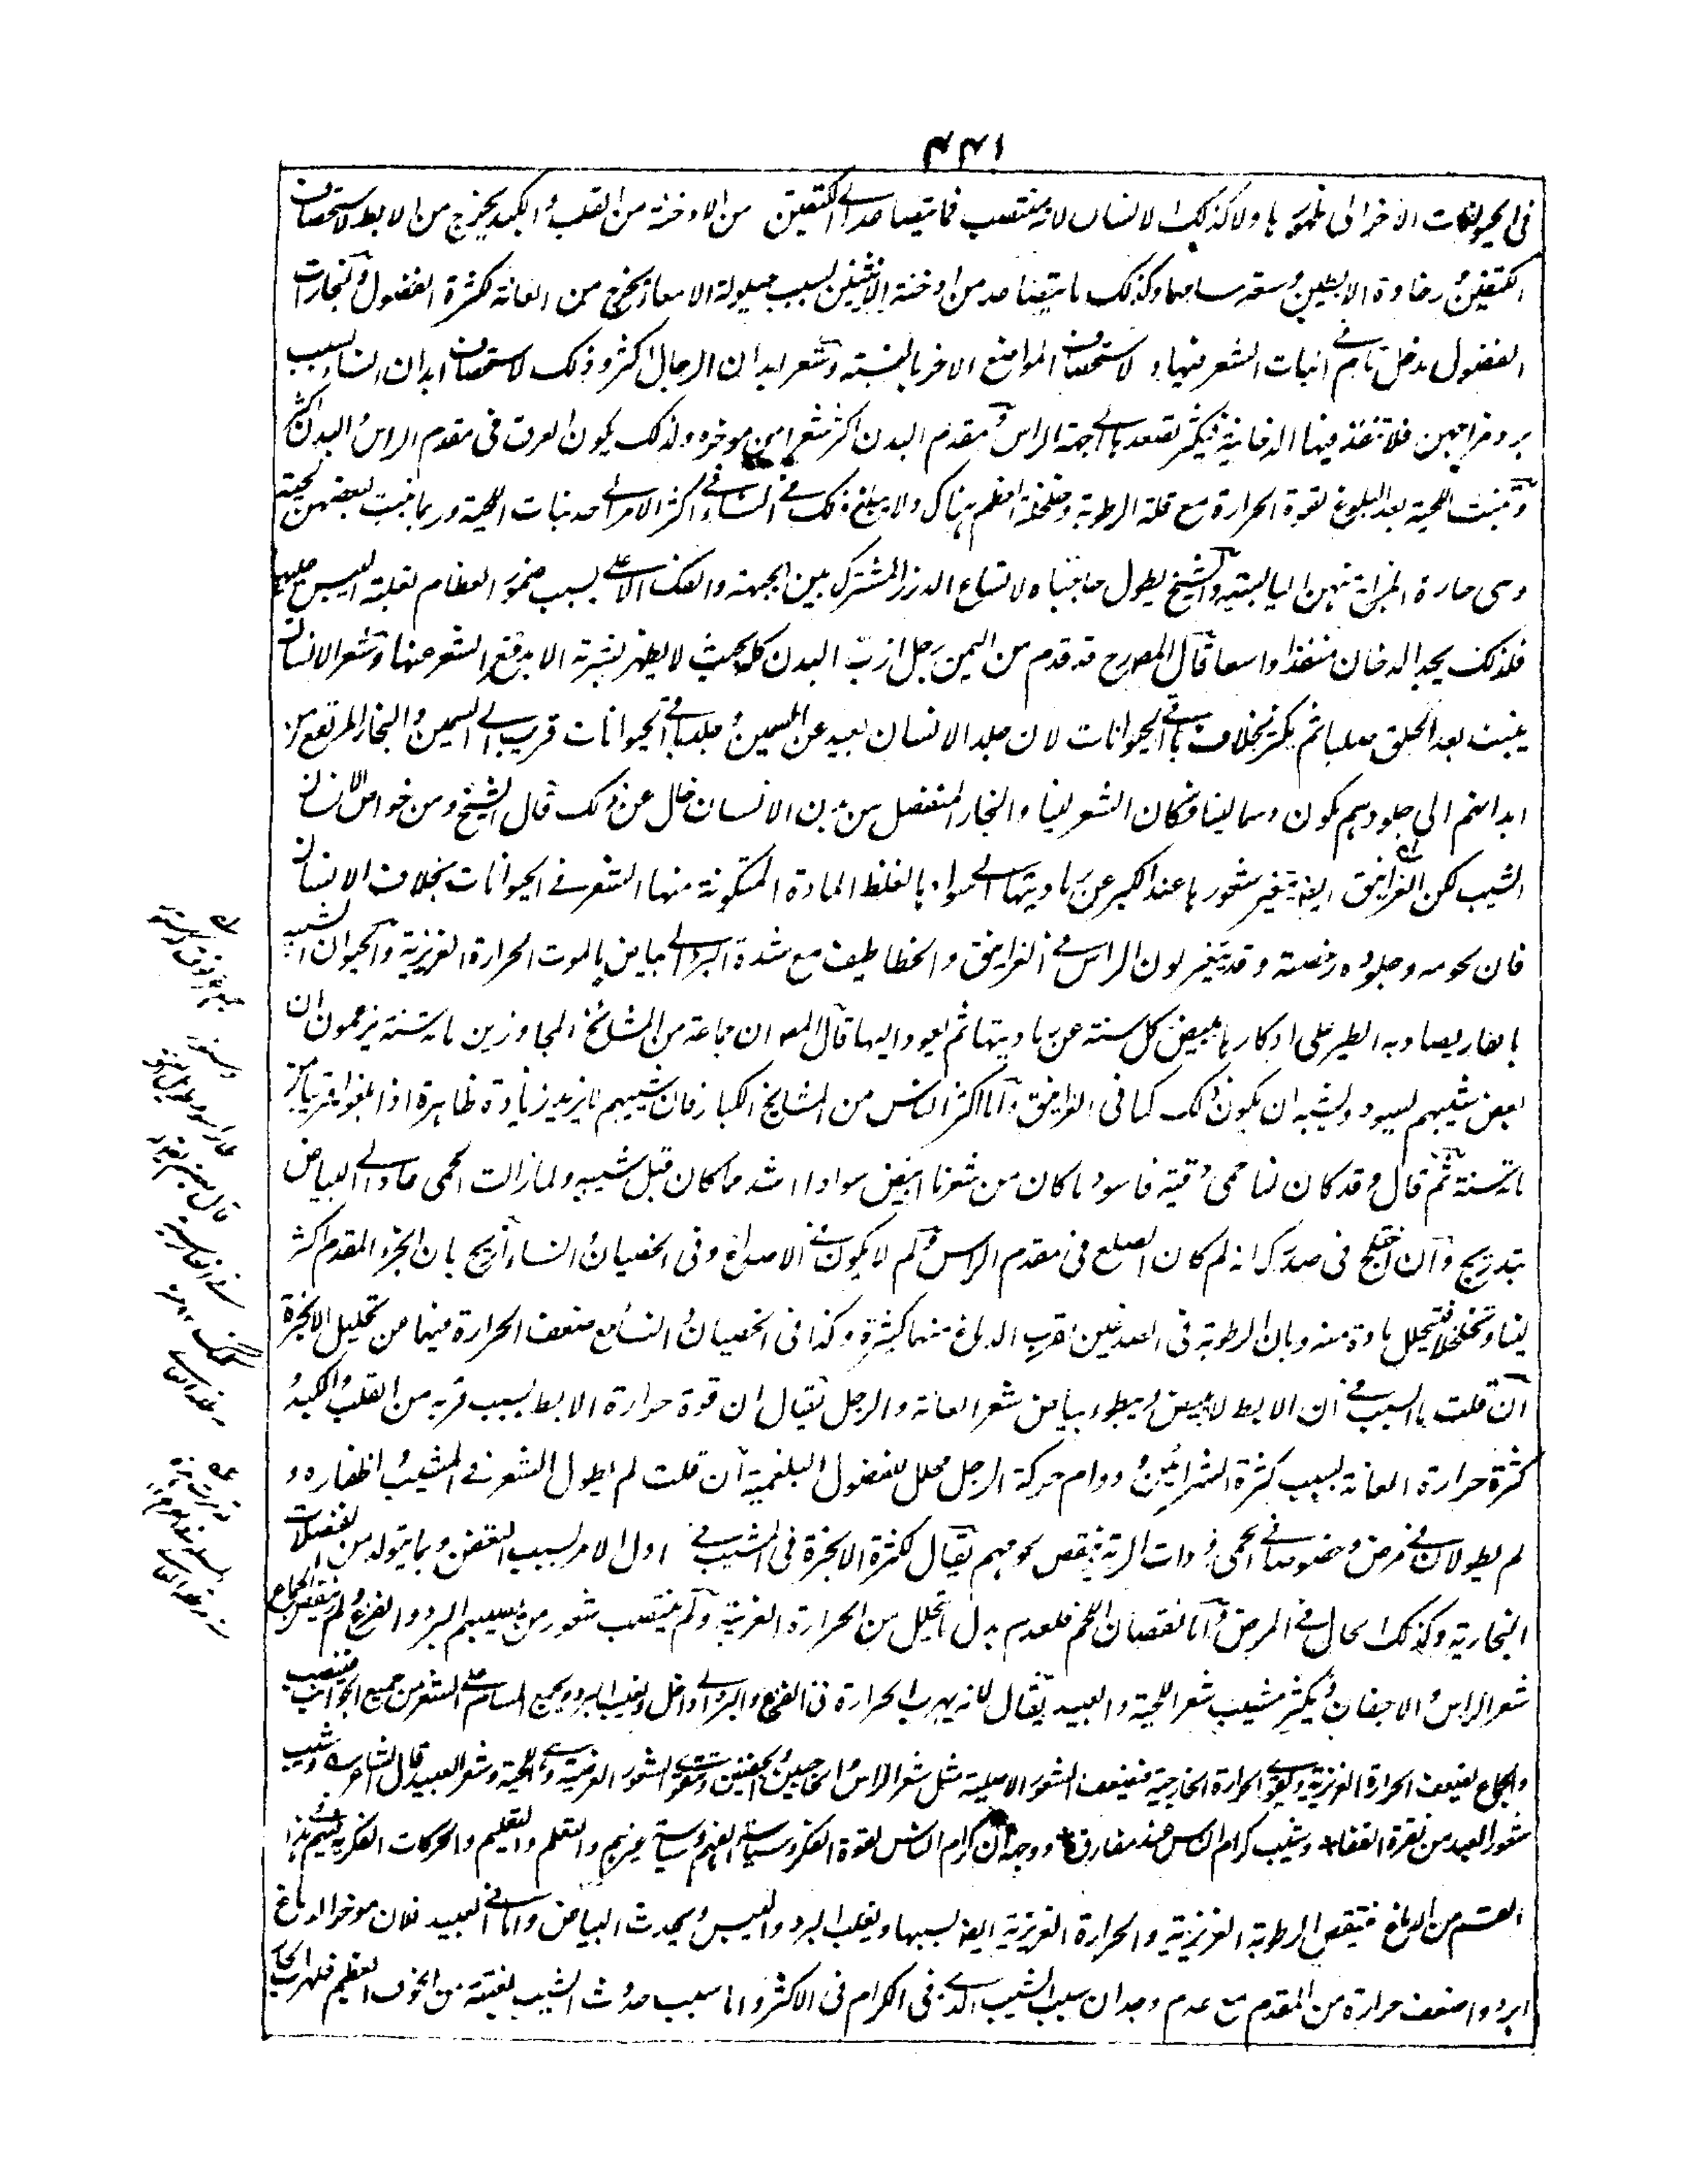 ۴۴۱
فى الحيوانات الاخر الى ظهورها ولا كذلك الانسان لانه منتصب فما يتصاعد الى الكتفين من الادخنة من القلب والكبد يخرج من الابط لاستحصاف
الكتفين ورخاوة الابطين وسعة مسامهما وكذلك ما يتصاعد من ادخنة الانثيين بسبب حيلولة الامعاء يخرج من العانة لكثرة الفضول ولبخارات
الفضول مدخل تام فى انبات الشعر فيها ولاستحصاف المواضع الاخر بالنسبة وشعر ابدان الرجال اكثر وذلك لاستحصاف ابدان النساء بسبب
برد مزاجهن فلا تنفذ فيها الدخانية فيكثر تصعدها الى جهة الراس ومقدم البدن اكثر شعرا من موخره ولذلك يكون العرق فى مقدم الراس والبدن اكثر
وتنبت اللحية بعد البلوغ لقوة الحرارة مع قلة الرطوبة وتخلخله اعظم هناك ولا يبلغ ذلك فى النساء فى اكثر الامر الى حد نبات اللحية وربما نبت لبعضهن لحية
وهى حارة المزاج منهن اليابسته والشيخ يطول حاجباه لاتساع الدرز المشترك بين الجبهة والفك الاعلى بسبب ضمور العظام لغلبة اليبس عليها
فلذلك يجد الدخان منفذا واسعا قال المص رح قد قدم من اليمن رجل ازب البدن كله بحيث لا يظهر بشرته الا برفع الشعر عنها وشعر الانسان
ينبت بعد الحلق صلبا ثم يكثر بخلاف باقى الحيوانات لان جلد الانسان بعيد عن السمين وجلد باقى الحيوانات قريب الى السمين والبخار المرتفع من
ابدانهم الى جلودهم يكون دسما لينا فكان الشعر لينا والبخار المنفصل من بدن الانسان خال عن ذلك قال الشيخ ومن خواص الانسان
الشيب لكن الغرانيق ايضا يتغير شعورها عند الكبر عن رماديتها الى سوادها لغلظ المادة المتكونة منها الشعر فى الحيوانات بخلاف الانسان
فان لحومه وجلوده رخصة وقد يتغير لون الراس فى الغرانيق والخطاطيف مع شدة البرد الى بياض ما لموت الحرارة الغريزية والحيوان الشبيه
بالفار يصاد به الطير على اوكارها يبيض كل سنة عن رماديتها ثم يعود اليها قال المص ان جماعة من المشائخ المجاوزين ماية سنة يزعمون ان
بعض شيبهم يسود ويشبه ان يكون ذلك كما فى الغرانيق واما اكثر الناس من المشايخ الكبار فان شيبهم ما يزيد زيادة ظاهرة اذا بلغوا قريبا من
ماية سنة ثم قال وقد كان لنا حمى دقية فاسود ما كان من شعرنا ابيض سوادا اشد مما كان قبل شيبه ولما زالت الحمى عاد الى البياض
بتدريج وان اختلج فى صدرك انه لم كان الصلع فى مقدم الراس ولم لا يكون فى الاصداغ وفى الخصيان والنساء ازيح بان الجزء المقدم اكثر
لينا وتخلخلا فتحلل مادة منه وبان الرطوبة فى الصدغين لقرب الدماغ منهما كثيرة وكذا فى الخصيان والنساء مع ضعف الحرارة فيهما من تحليل الابخرة
ان قلت ما السبب فى ان الابط لا يبيض ويبطو بياض شعر العانة والرجل يقال ان قوة حرارة الابط بسبب قربه من القلب والكبد و
كثرة حرارة العانة بسبب كثرة الشرائين ودوام حركة الرجل محلل للفضول البلغمية ان قلت لم يطول الشعر فى المشيب واظفاره و
لم يطولان فى مرض وخصوصا فى الحمى وذات الرية وينقص لحومهم يقال لكثرة الابخرة فى المشيب فى اول الامر بسبب التعفن وبما يتولد من الفضلات
البخارية وكذلك الحال فى المرض واما نقصان اللحم فلعدم بدل ما يتحلل من الحرارة الغريبة ولم ينتصب شعور من يصيبهم البرد والفزع ولم ينقص الجماع
شعر الراس والاجفان ويكثر مشيب شعر اللحية والعبيد يقال لانه يهرب الحرارة فى الفزع والبرد الى داخل ويغلب البرد ويجمع المسام على الشعر من جميع الجوانب فينتصب
والجماع يضعف الحرارة الغريزية ويقوى الحرارة الخارجية فيضعف الشعور الاصلية مثل شعر الراس والحاجبين والجفنين ويقوى الشعور العرضية وهى اللحية وشعر العبيد قال الشاعر وشيب
شعور العبد من نقرة القفا * وشيب كرام الناس عند مفارق * ووجه ان كرام الناس لقوة الفكر وسياسة انفسهم وسياسة غيرهم والتعلم والتعليم والحركات الفكرية يتم بهذا
القسم من الدماغ فينقص الرطوبة الغريزية والحرارة الغريزية ايضا بسببها ويغلب البرد واليبس ويحدث البياض واما فى العبيد فلان موخر الدماغ
ابرد واضعف حرارة من المقدم مع عدم وجدان سبب الشيب الذى فى الكرام فى الاكثر واما سبب حدوث الشيب بغتة من الخوف العظيم فلهرب الحار